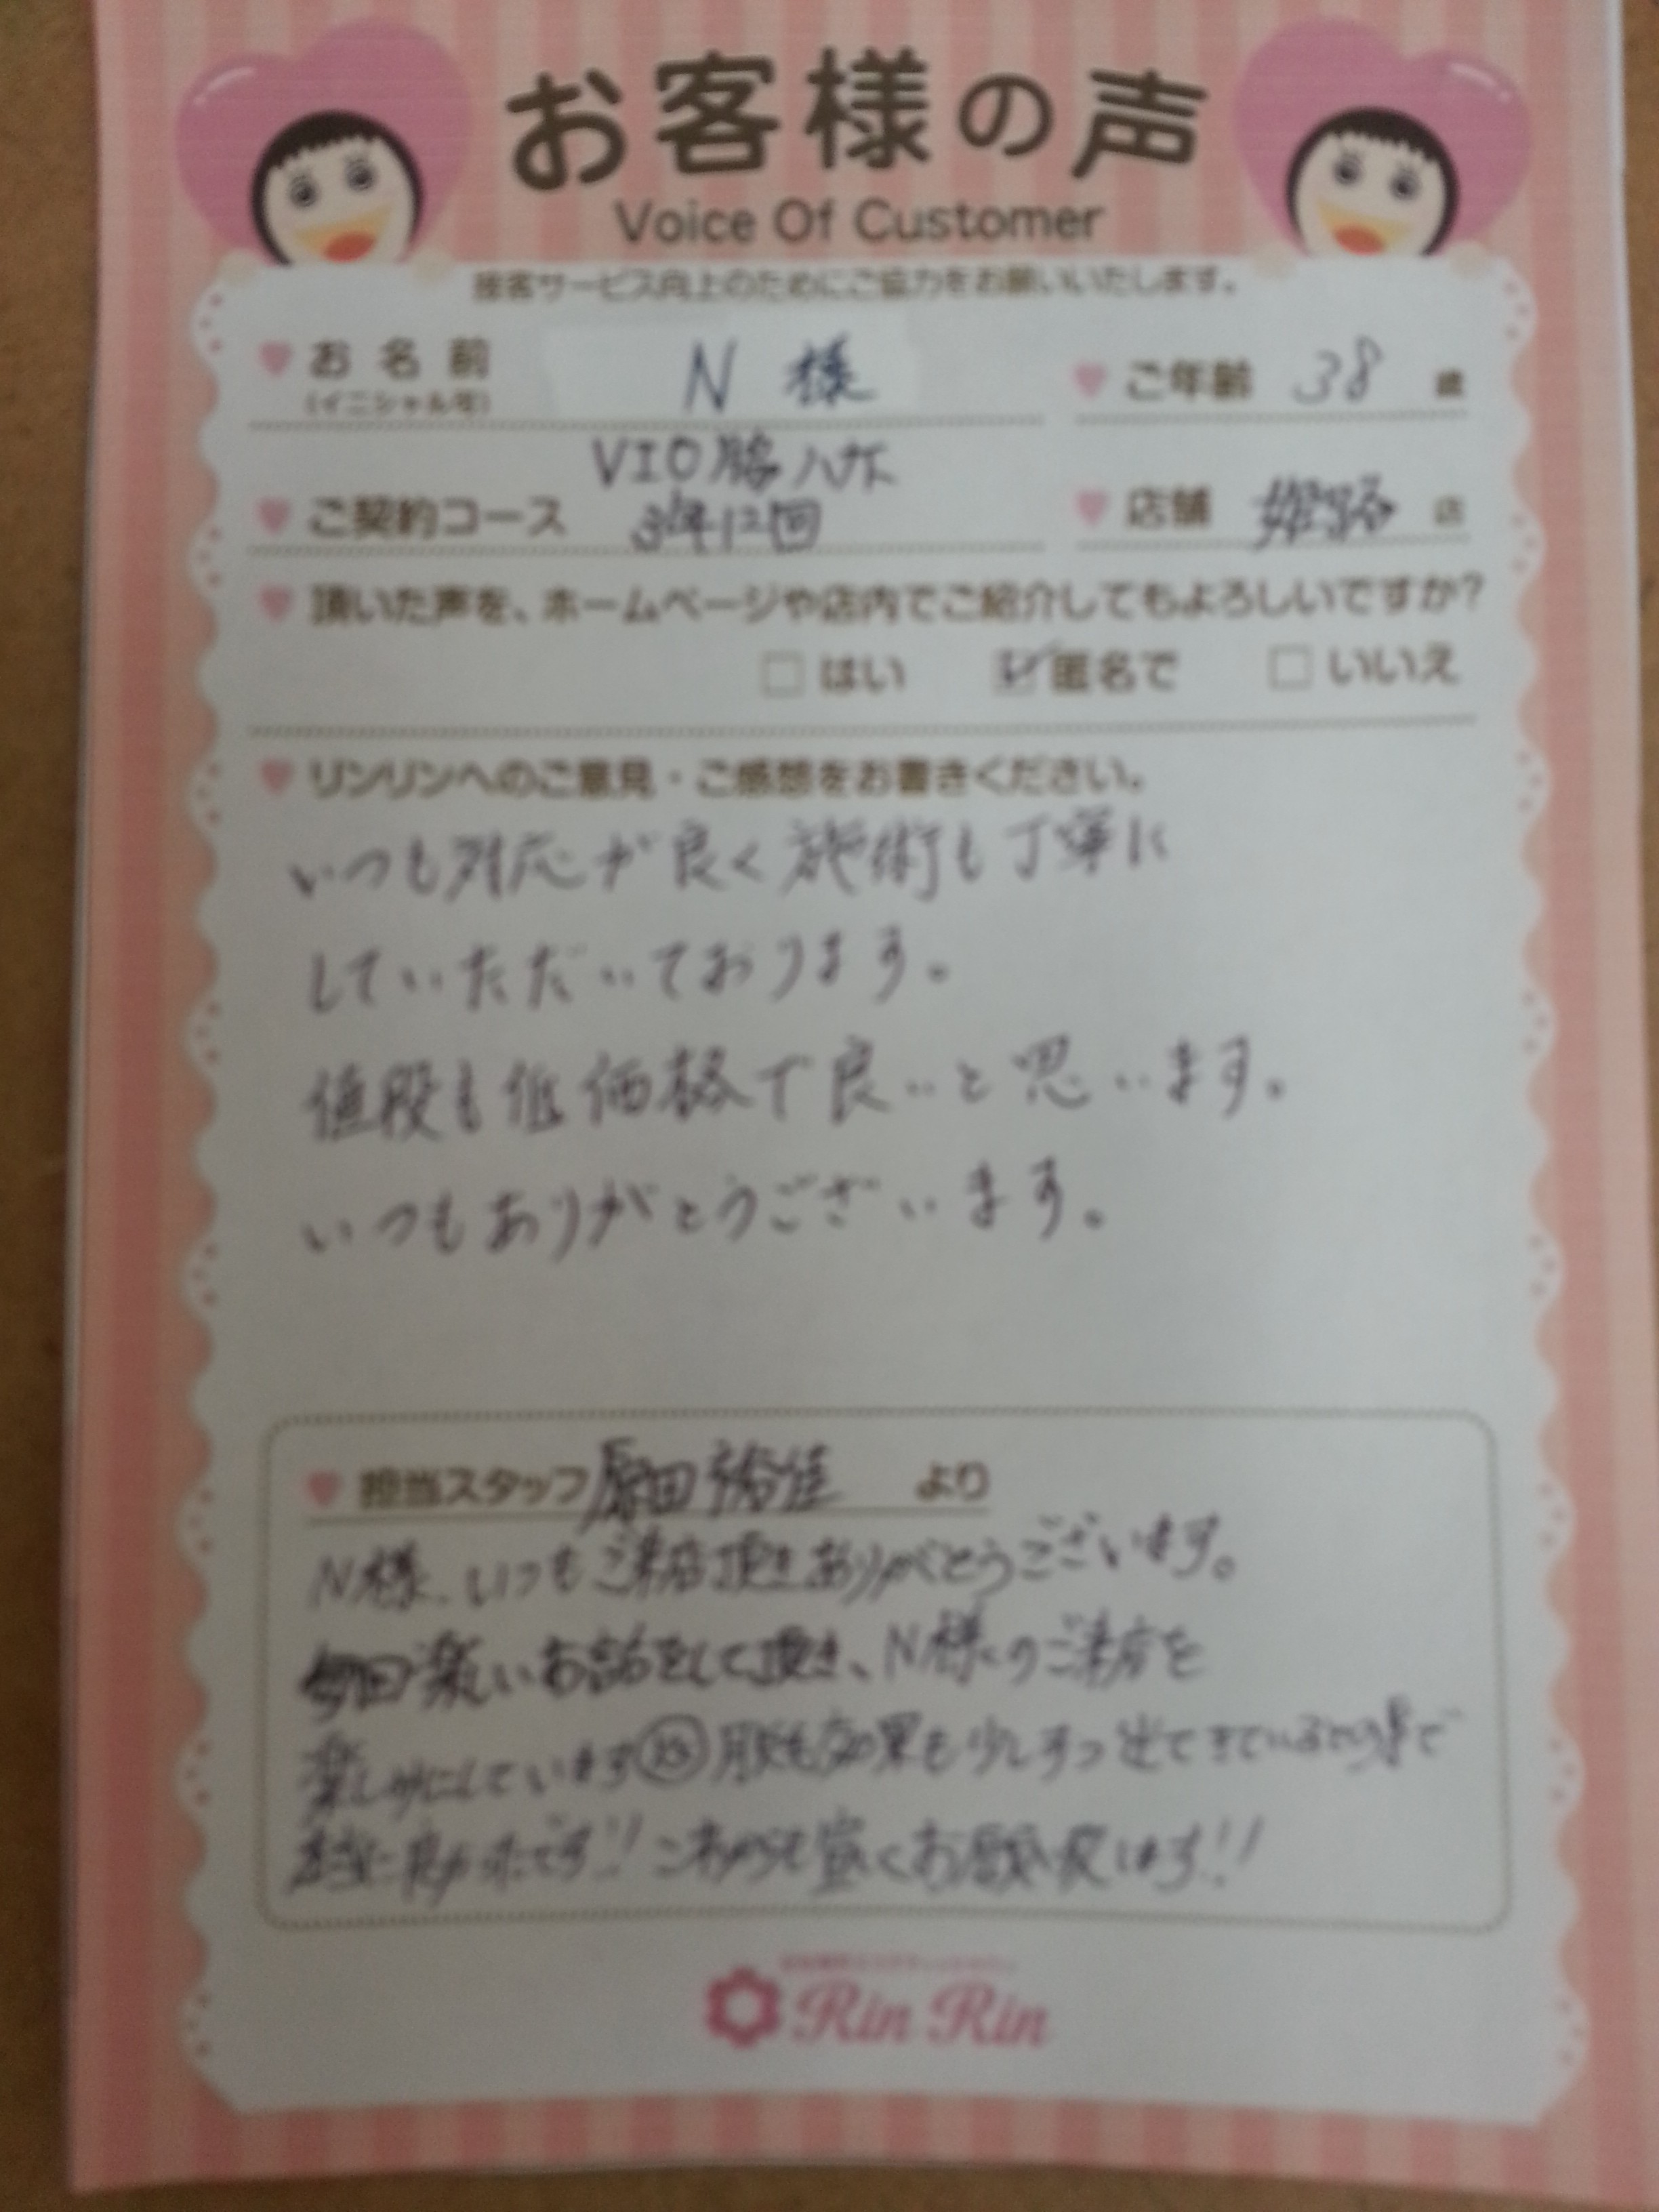 お客様の声
Voice Of Customer
接客サービス向上のためにご協力をお願いいたします。
お名前 N 様 ご年齢 38 歳
(イニシャル可)
VIO脇ハナ下
ご契約コース 3年12回 店舗 姫路 店
頂いた声を、ホームページや店内でご紹介してもよろしいですか?
はい 匿名で いいえ
リンリンへのご意見・ご感想をお書きください。
いつも対応が良く施術も丁寧に
していただいております。
値段も低価格で良いと思います。
いつもありがとうございます。
担当スタッフ 原田 裕佳 より
N様、いつもご来店頂きありがとうございます。
毎回楽しいお話をして頂き、N様のご来店を
楽しみにしています 脱毛効果も少しずつ出てきているので
本当に良かったです!! これからも宜しくお願い致します!!
Rin Rin